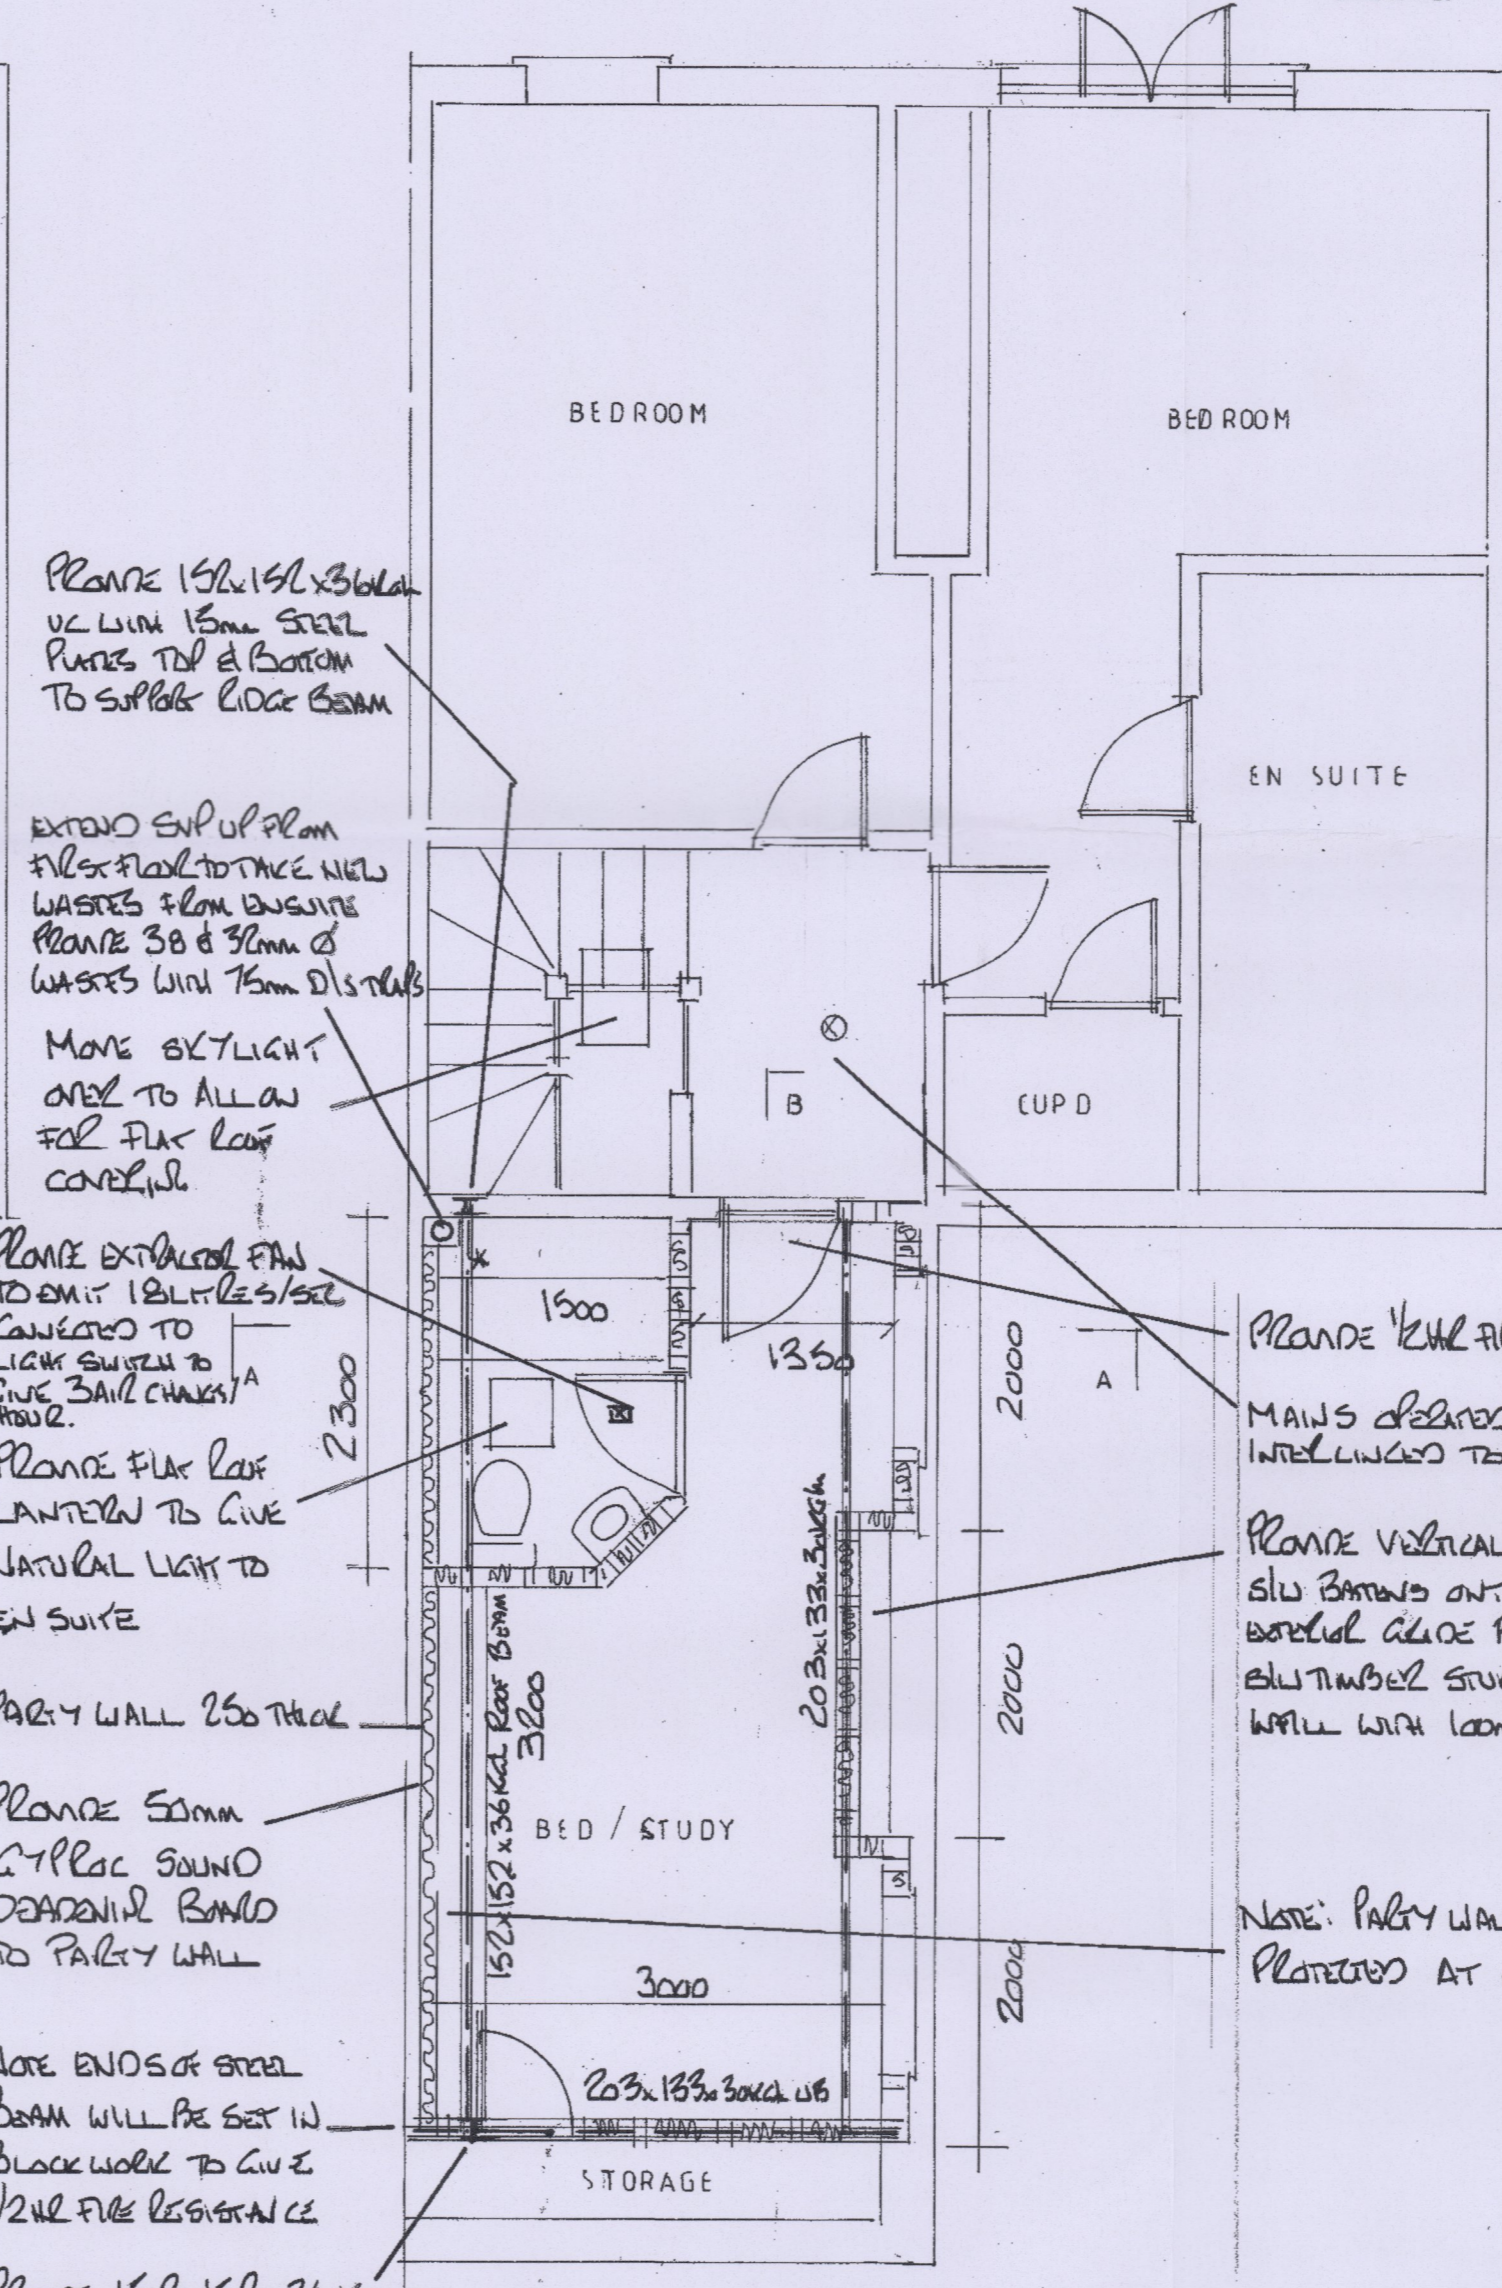 BEDROOM
BEDROOM
EN SUITE
CUPD
B
PROVIDE 152x152x36kgh
UC WITH 15mm STEEL
PLATES TOP & BOTTOM
TO SUPPORT RIDGE BEAM
EXTEND SVP UP FROM
FIRST FLOOR TO TAKE NEW
WASTES FROM ENSUITE
PROVIDE 38 & 32mm Ø
WASTES WITH 75mm D/S TRAPS
MOVE SKYLIGHT
OVER TO ALLOW
FOR FLAT ROOF
COVERING
PROVIDE EXTRACTOR FAN
TO EMIT 18LITRES/SEC
CONNECTED TO
LIGHT SWITCH TO
GIVE 3AIR CHANGES/
HOUR.
A
PROVIDE FLAT ROOF
LANTERN TO GIVE
NATURAL LIGHT TO
EN SUITE
PARTY WALL 250 THICK
PROVIDE 50mm
GYPROC SOUND
DEADENING BOARD
TO PARTY WALL
NOTE ENDS OF STEEL
BEAM WILL BE SET IN
BLOCKWORK TO GIVE
1/2HR FIRE RESISTANCE
2300
1500
1350
2000
2000
2000
A
203x133x30kgh
152x152x36kgh ROOF BEAM
3200
BED / STUDY
3000
203x133x30kgh UB
STORAGE
PROVIDE 1/2HR
MAINS OPERATED
INTERLINKED TO
PROVIDE VERTICAL
S/W BATTENS
EXTERIOR GRADE
S/W TIMBER
INFILL WITH
NOTE: PARTY WAL
PROTECTED AT